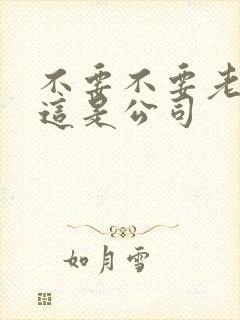 不要不要老
這是公司
如月雪